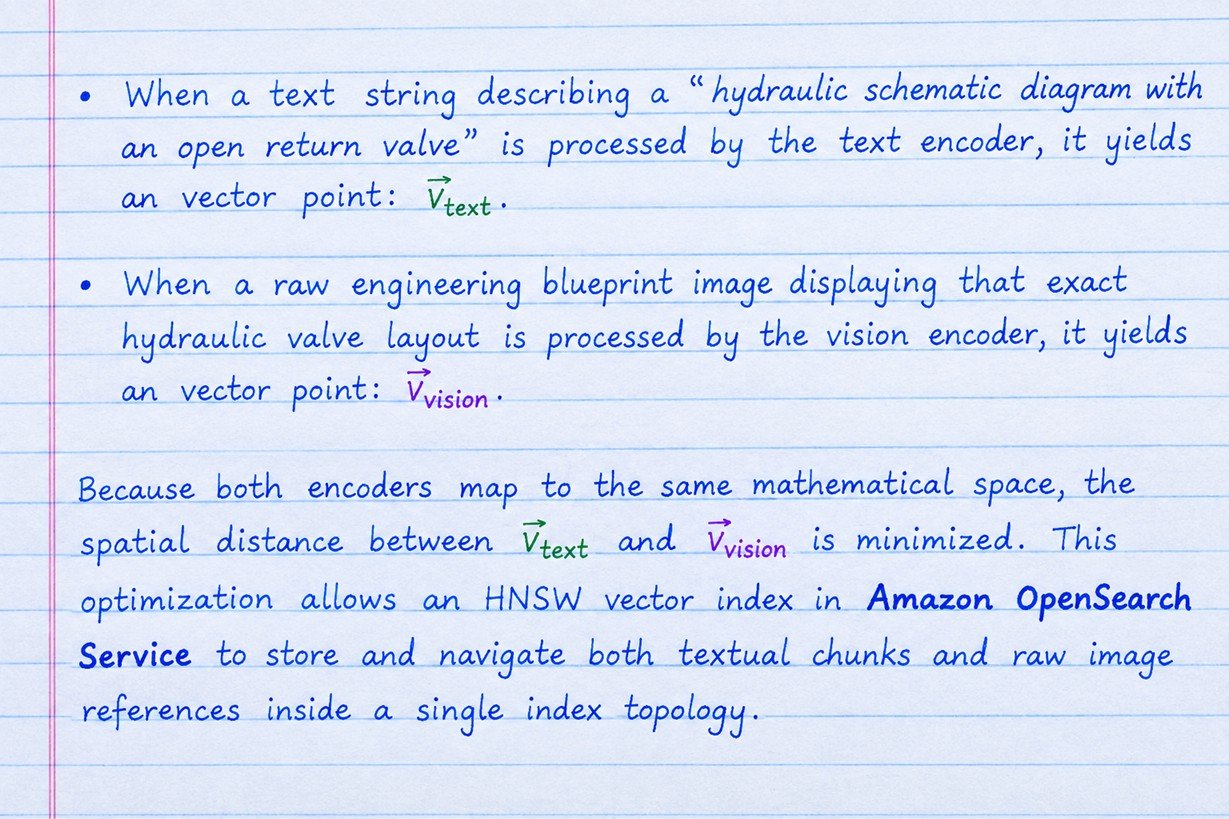 • When a text string describing a “hydraulic schematic diagram with
an open return valve” is processed by the text encoder, it yields
an vector point: V⃗text.
• When a raw engineering blueprint image displaying that exact
hydraulic valve layout is processed by the vision encoder, it yields
an vector point: V⃗vision.
Because both encoders map to the same mathematical space, the
spatial distance between V⃗text and V⃗vision is minimized. This
optimization allows an HNSW vector index in Amazon OpenSearch
Service to store and navigate both textual chunks and raw image
references inside a single index topology.